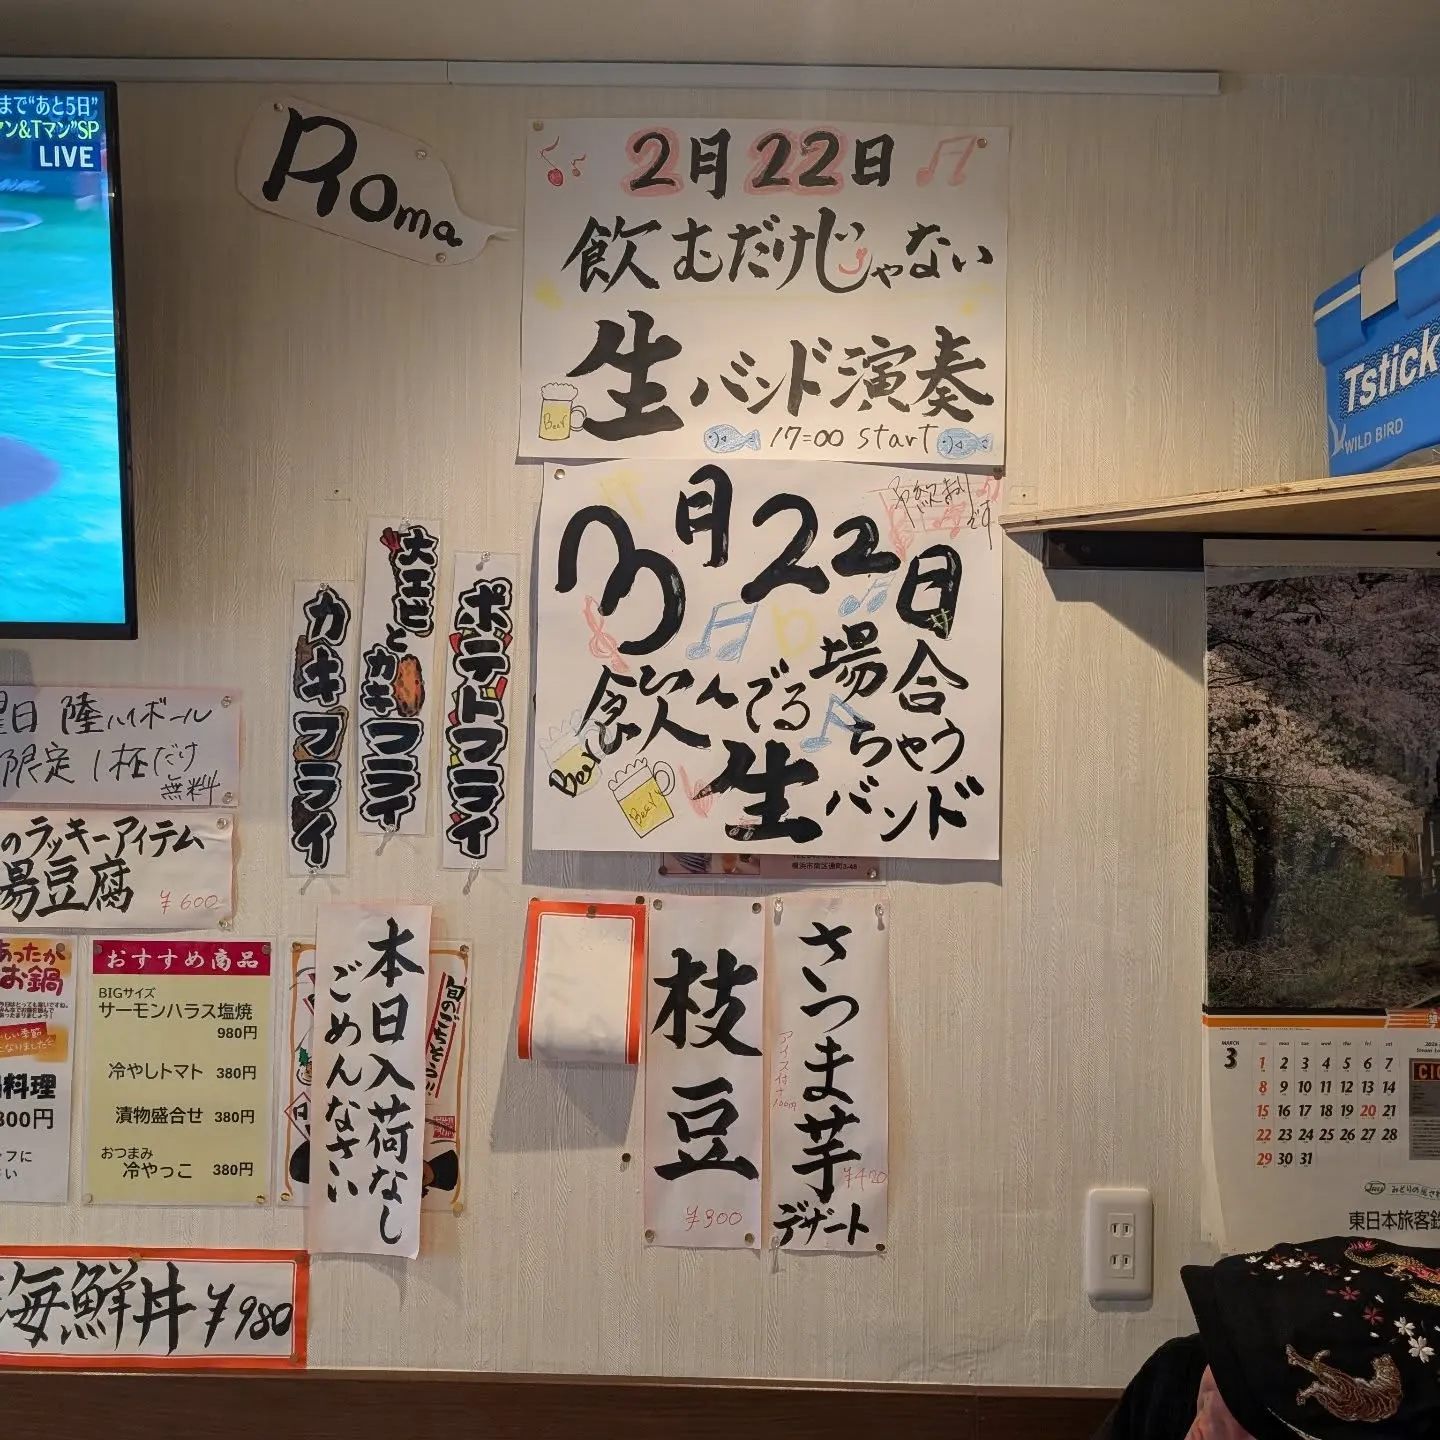 まで"あと5日"
マン&Tマン"SP
LIVE
Roma
2月22日
飲むだけじゃない
生バンド演奏
Beer
17=00 start
3月22日
飲んでる場合
ちゃう
生バンド
Beer
Beer!
横浜市南区通町3-48
カキフライ
大エビとカキフライ
ポテトフライ
曜日 陸ハイボール
限定1杯だけ
無料
のラッキーアイテム
湯豆腐
¥600
あったか
お鍋
料理
300円
おすすめ商品
BIGサイズ
サーモンハラス塩焼
980円
冷やしトマト 380円
漬物盛合せ 380円
おつまみ
冷やっこ 380円
本日入荷なし
ごめんなさい
旬のごちそう!!
枝豆
¥300
さつま芋
アイス付+100円
¥420
デザート
海鮮丼 ¥980
Tstick
WILD BIRD
MARCH
3
sun mon tue wed thu fri sat
1 2 3 4 5 6 7
8 9 10 11 12 13 14
15 16 17 18 19 20 21
22 23 24 25 26 27 28
29 30 31
東日本旅客鉄